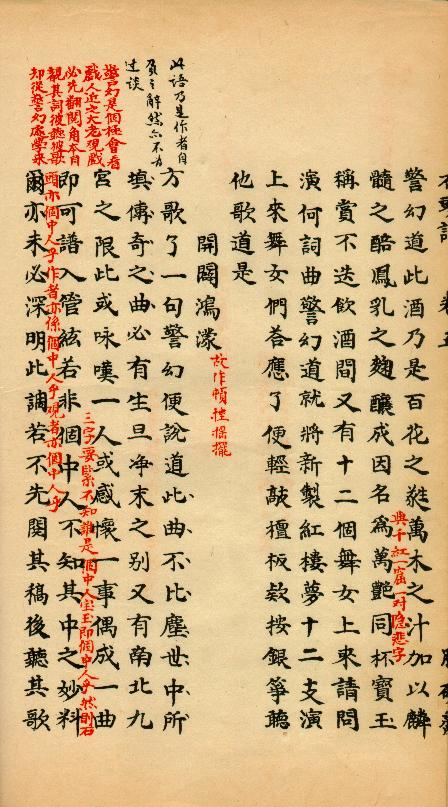 警幻道此酒乃是百花之蕤萬木之汁加以麟
髓之醅鳳乳之麯釀成因名為萬艷同杯寶玉
與千紅一窟一对隐悲字
稱賞不迭飲酒間又有十二個舞女上來請問
演何詞曲警幻道就將新製紅樓夢十二支演
上來舞女們答應了便輕敲檀板款按銀箏聽
他歌道是
開闢鴻濛
故作頓挫摇擺
方歌了一句警幻便說道此曲不比塵世中所
此語乃是作者自
負之辭然亦不為
过谈
填傳奇之曲必有生旦净末之別又有南北九
宮之限此或咏嘆一人或感懷一事偶成一曲
警幻是個極會看
戲人近之大老觀戲
必先翻閱角本目
覩其詞彼聽彼歌
却從警幻處學來
即可譜入管絃若非個中人不知其中之妙料
三字要緊不知誰是個中人宝玉即個中人乎然則石
頭亦個中人乎作者亦係個中人乎观者亦個中人乎
爾亦未必深明此調若不先閱其稿後聽其歌